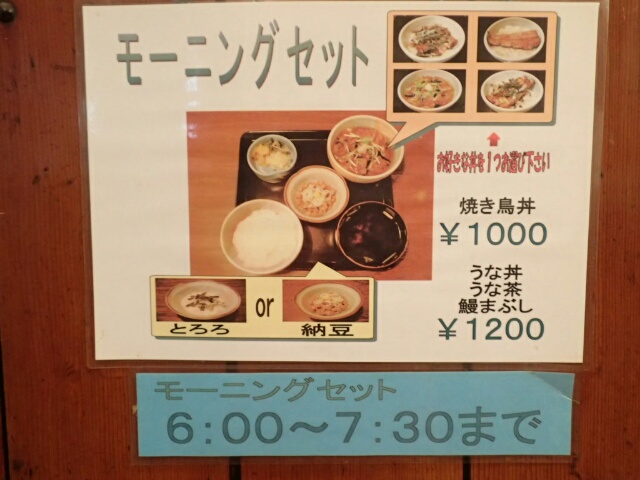 モーニングセット
お好きな丼を1つお選び下さい
焼き鳥丼
￥1000
うな丼
うな茶
鰻まぶし
￥1200
とろろ
or
納豆
モーニングセット
6:00～7:30まで